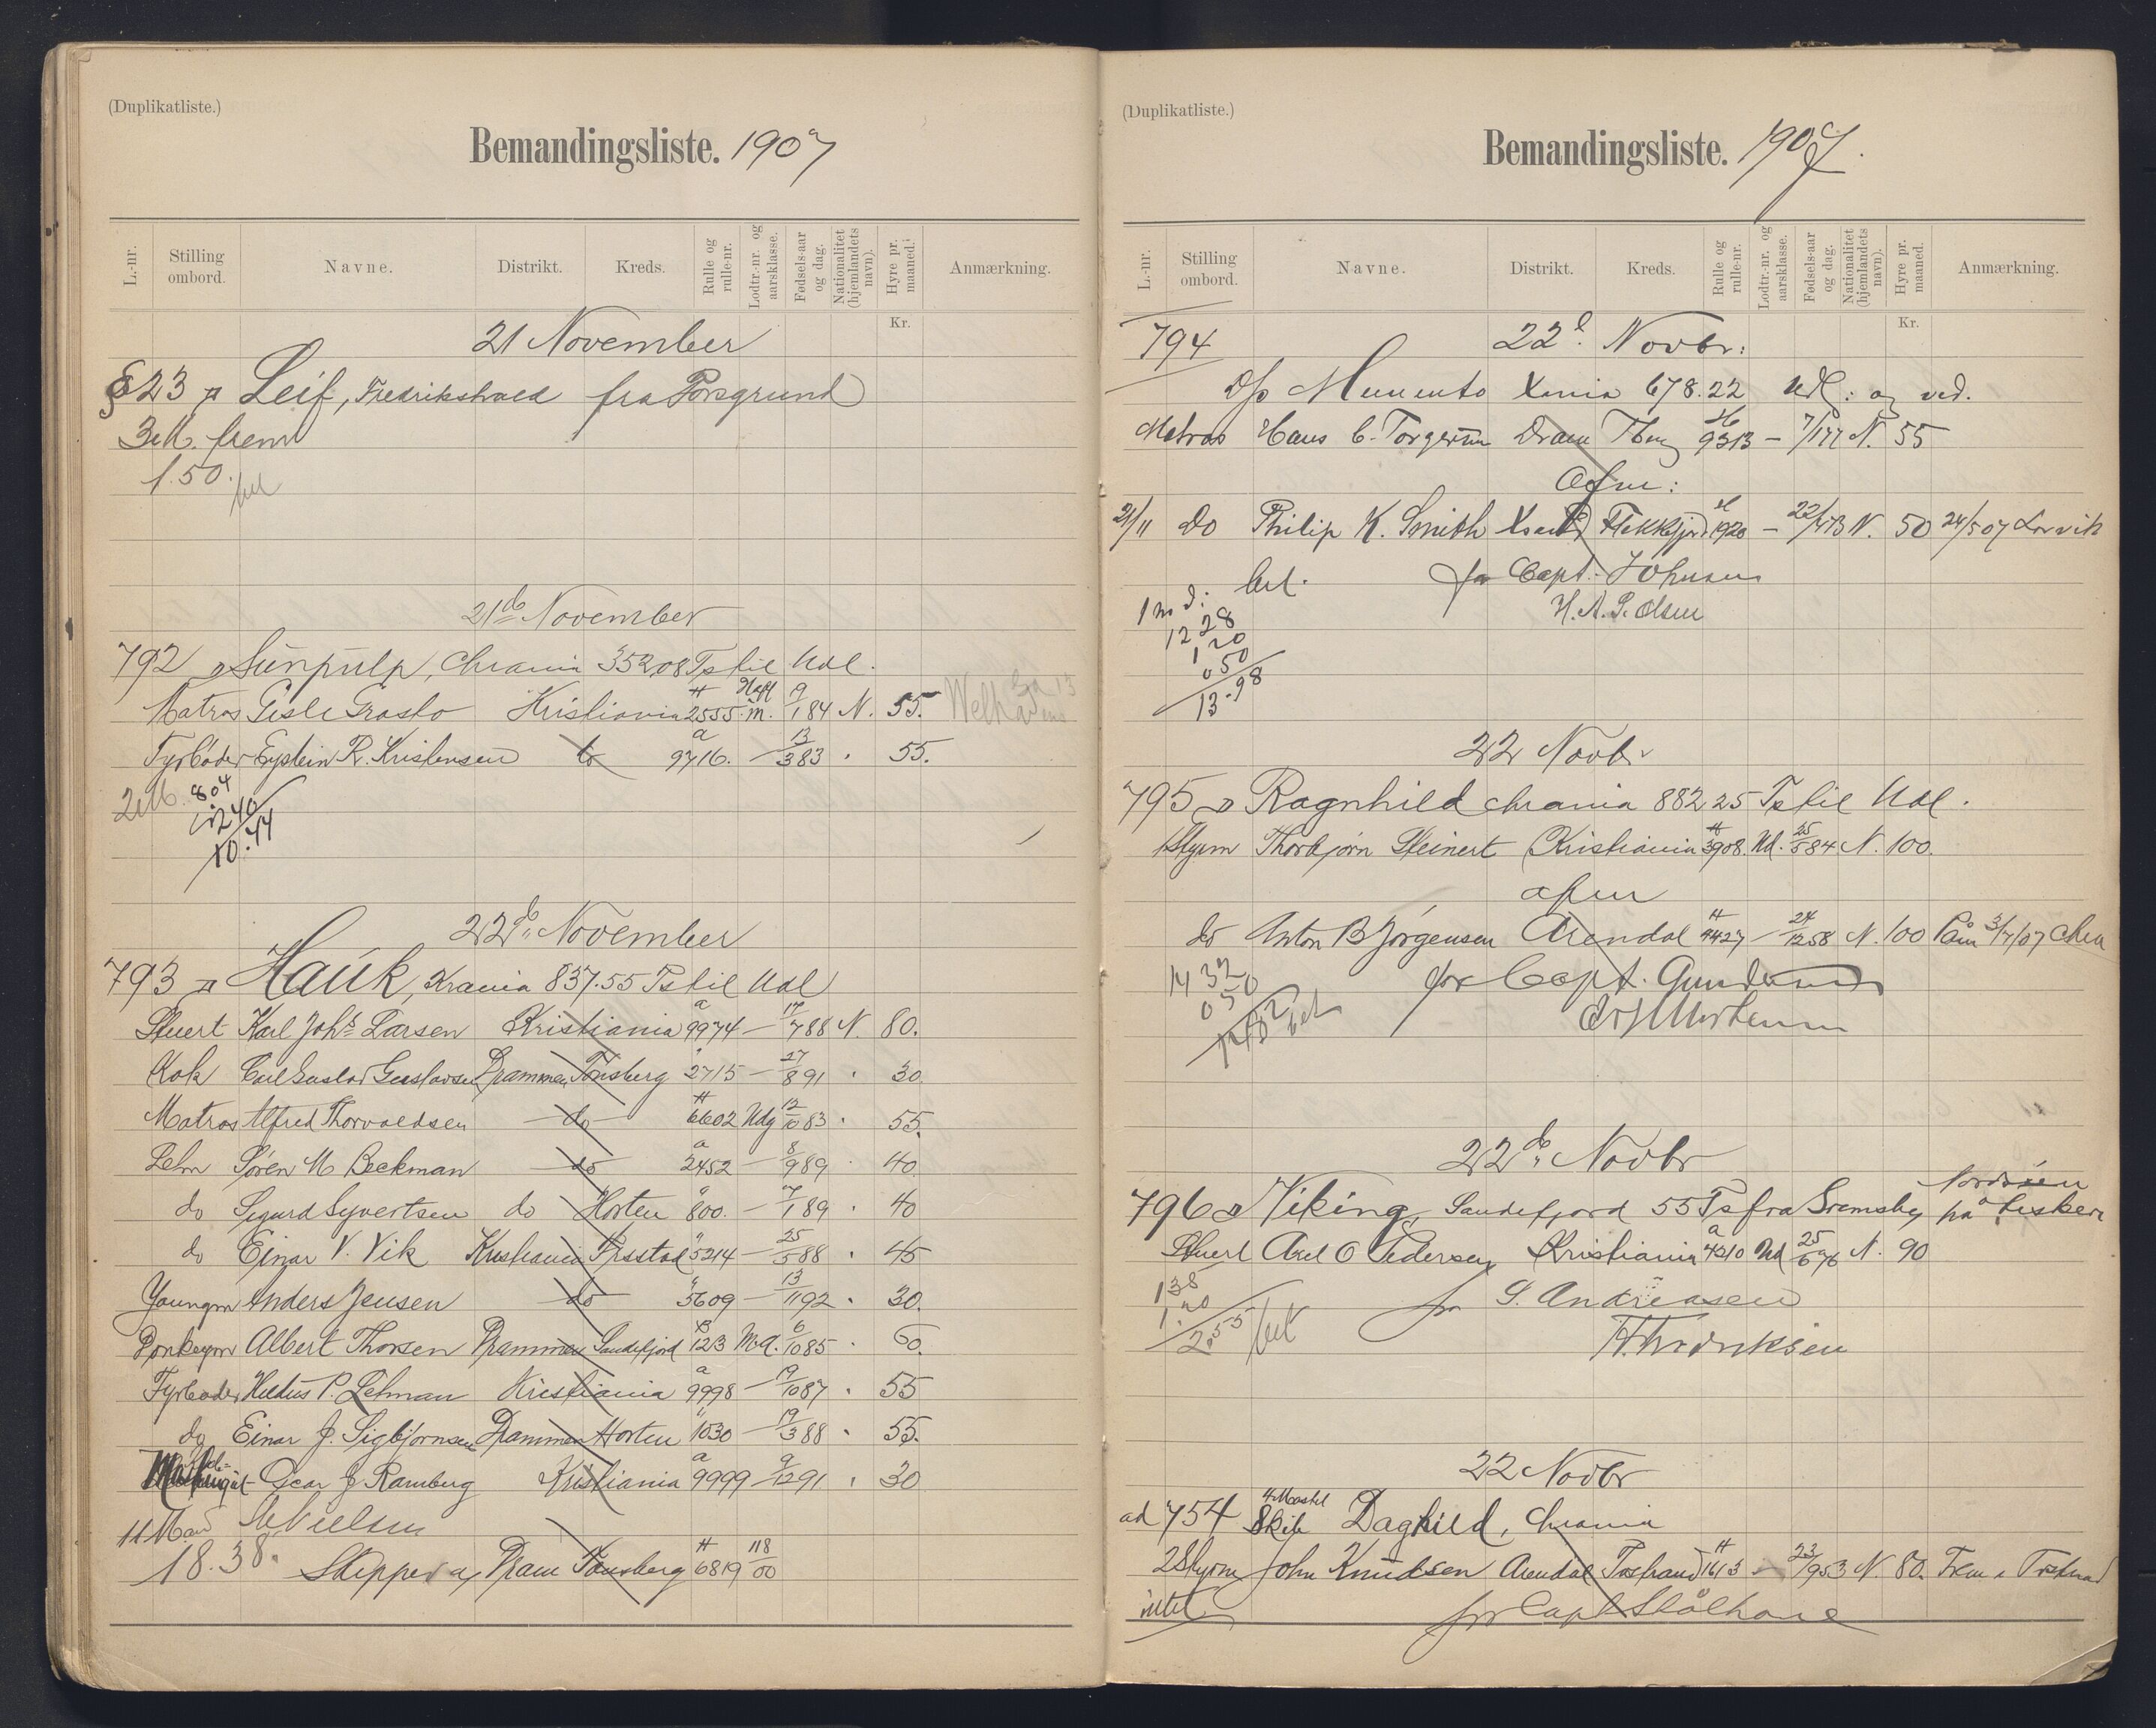 (Duplikatliste.)
Bemandingsliste. 1907
L.-nr. Stilling ombord. Navne. Distrikt. Kreds. Rulle og rulle-nr. Lodtr.-nr. og aarsklasse. Fødsels-aar og dag. Nationalitet (hjemlandets navn). Hyre pr. maaned. Anmærkning.
Kr.
21 November
§ 23 Leif, Fredrikshald fra Porsgrund
3 M. frem
1.50.
21de November
792 Sunpulp, Chrania 352,08 Ts til Udl.
Matros Gisle Kristiania 2555 m. 9/1 84 N. 55.
Fyrbøder Eystein R. Kristensen do a 9716. – 13/3 83 " 55.
2 M. 8.04
2 40
10.44
22de November
793 Hauk, Krania 837.55 Ts til Udl
Stuert Karl Johs Larsen Kristiania a 9974 – 17/7 88 N. 80.
Kok Carl Gustav Gustavsen Drammen Tønsberg " 2715 – 27/8 91 " 30.
Matros Alfred Thorvaldsen do H 6602 Udg 12/10 83 " 55.
Letm Søren M Beckman do a 2452 – 8/9 89 " 40
do Sigurd Syvertsen do Horten " 800. – 7/1 89 " 40
do Einar V. Vik Kristiania " 5214 – 25/5 88 " 45
Youngm Anders Jensen do " 5609 – 13/11 92 " 30.
Donkeym Albert Thorsen Drammen Sandefjord B 1213 6/10 85 " 60.
Fyrbøder P. Lehman Kristiania a 9998 – 19/10 87 " 55
do Einar J. Sigbjørnsen Drammen Horten " 1030 – 19/3 88 " 55.
Oscar J Ramberg Kristiania a 9999 9/12 91 " 30
11 Mand M Nielsen
18.38 Skipper a, Dram Tønsberg H 6819 118/00
(Duplikatliste.)
Bemandingsliste. 1907.
L.-nr. Stilling ombord. Navne. Distrikt. Kreds. Rulle og rulle-nr. Lodtr.-nr. og aarsklasse. Fødsels-aar og dag. Nationalitet (hjemlandets navn). Hyre pr. maaned. Anmærkning.
Kr.
794 22d. Novbr:
D/s Memento Xania 678.22 Udl: og ved.
Matros Hans C. Torgersen Dram Tbng H 9313 – 7/1 77 N. 55
Afm:
21/11 do Philip K. Smith Xsand Flekkefjord H 1920 – 22/ N. 50 24/5 07 Larvik
for Capt. Johnsen
1 md: H. A. P. Olsen
12 28
1 20
0 50
13.98
22 Novbr
795 Ragnhild Chrania 882 25 Ts til Udl.
1 Styrm Thorbjørn Steinert Kristiania H 3908. Ud. 25/5 84 N. 100.
afm
do Anton B Jørgensen Arendal H 4427 – 24/12 58 N. 100 Påm 3/7/07 Chra
14 32 for Capt. Gundersen
0 50
22de Novbr
796 Viking, Sandefjord 55 Ts fra på fiskeri
Stuert Axel O Pedersen Kristiania a 4210 Ud 25/6 76 N. 90
1 38 for S. Andreasen
2.55 H. Fredriksen
22 Novbr
ad 754 4 Mastet Skib Daghild, Chrania
2 Styrm John Knudsen Arendal H 1613 – 23/9 53 N. 80.
intet for Capt Stålhane